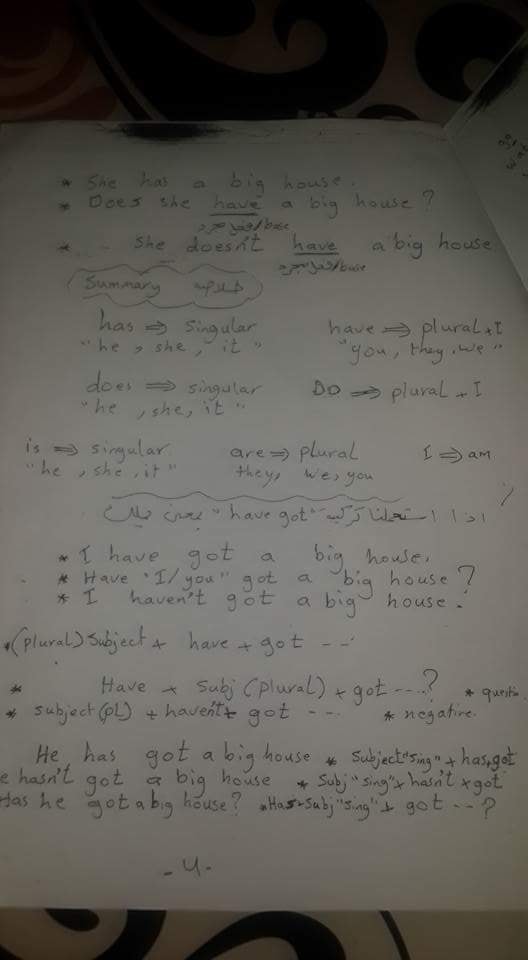 * She has a big house.
* Does she have a big house?
الفعل مجرد/base
* .. She doesn't have a big house
الفعل مجرد/base
Summary
has ⇒ singular have ⇒ plural + I
"he, she, it" "you, they, we"
does ⇒ singular Do ⇒ plural + I
"he, she, it"
is ⇒ singular. are ⇒ plural I ⇒ am
"he, she, it" they, we, you
اذا استعملنا تركيب "have got" بمعنى يملك
* I have got a big house.
* Have "I/you" got a big house?
* I haven't got a big house.
*(plural) Subject + have + got ---
* Have + Subj (plural) + got ----? * questio
* subject (pl) + haven't + got --- * negative.
He has got a big house * Subject "sing" + has + got
e hasn't got a big house * Subj "sing" + hasn't + got
Has he got a big house? * Has + subj "sing" + got --?
-4-